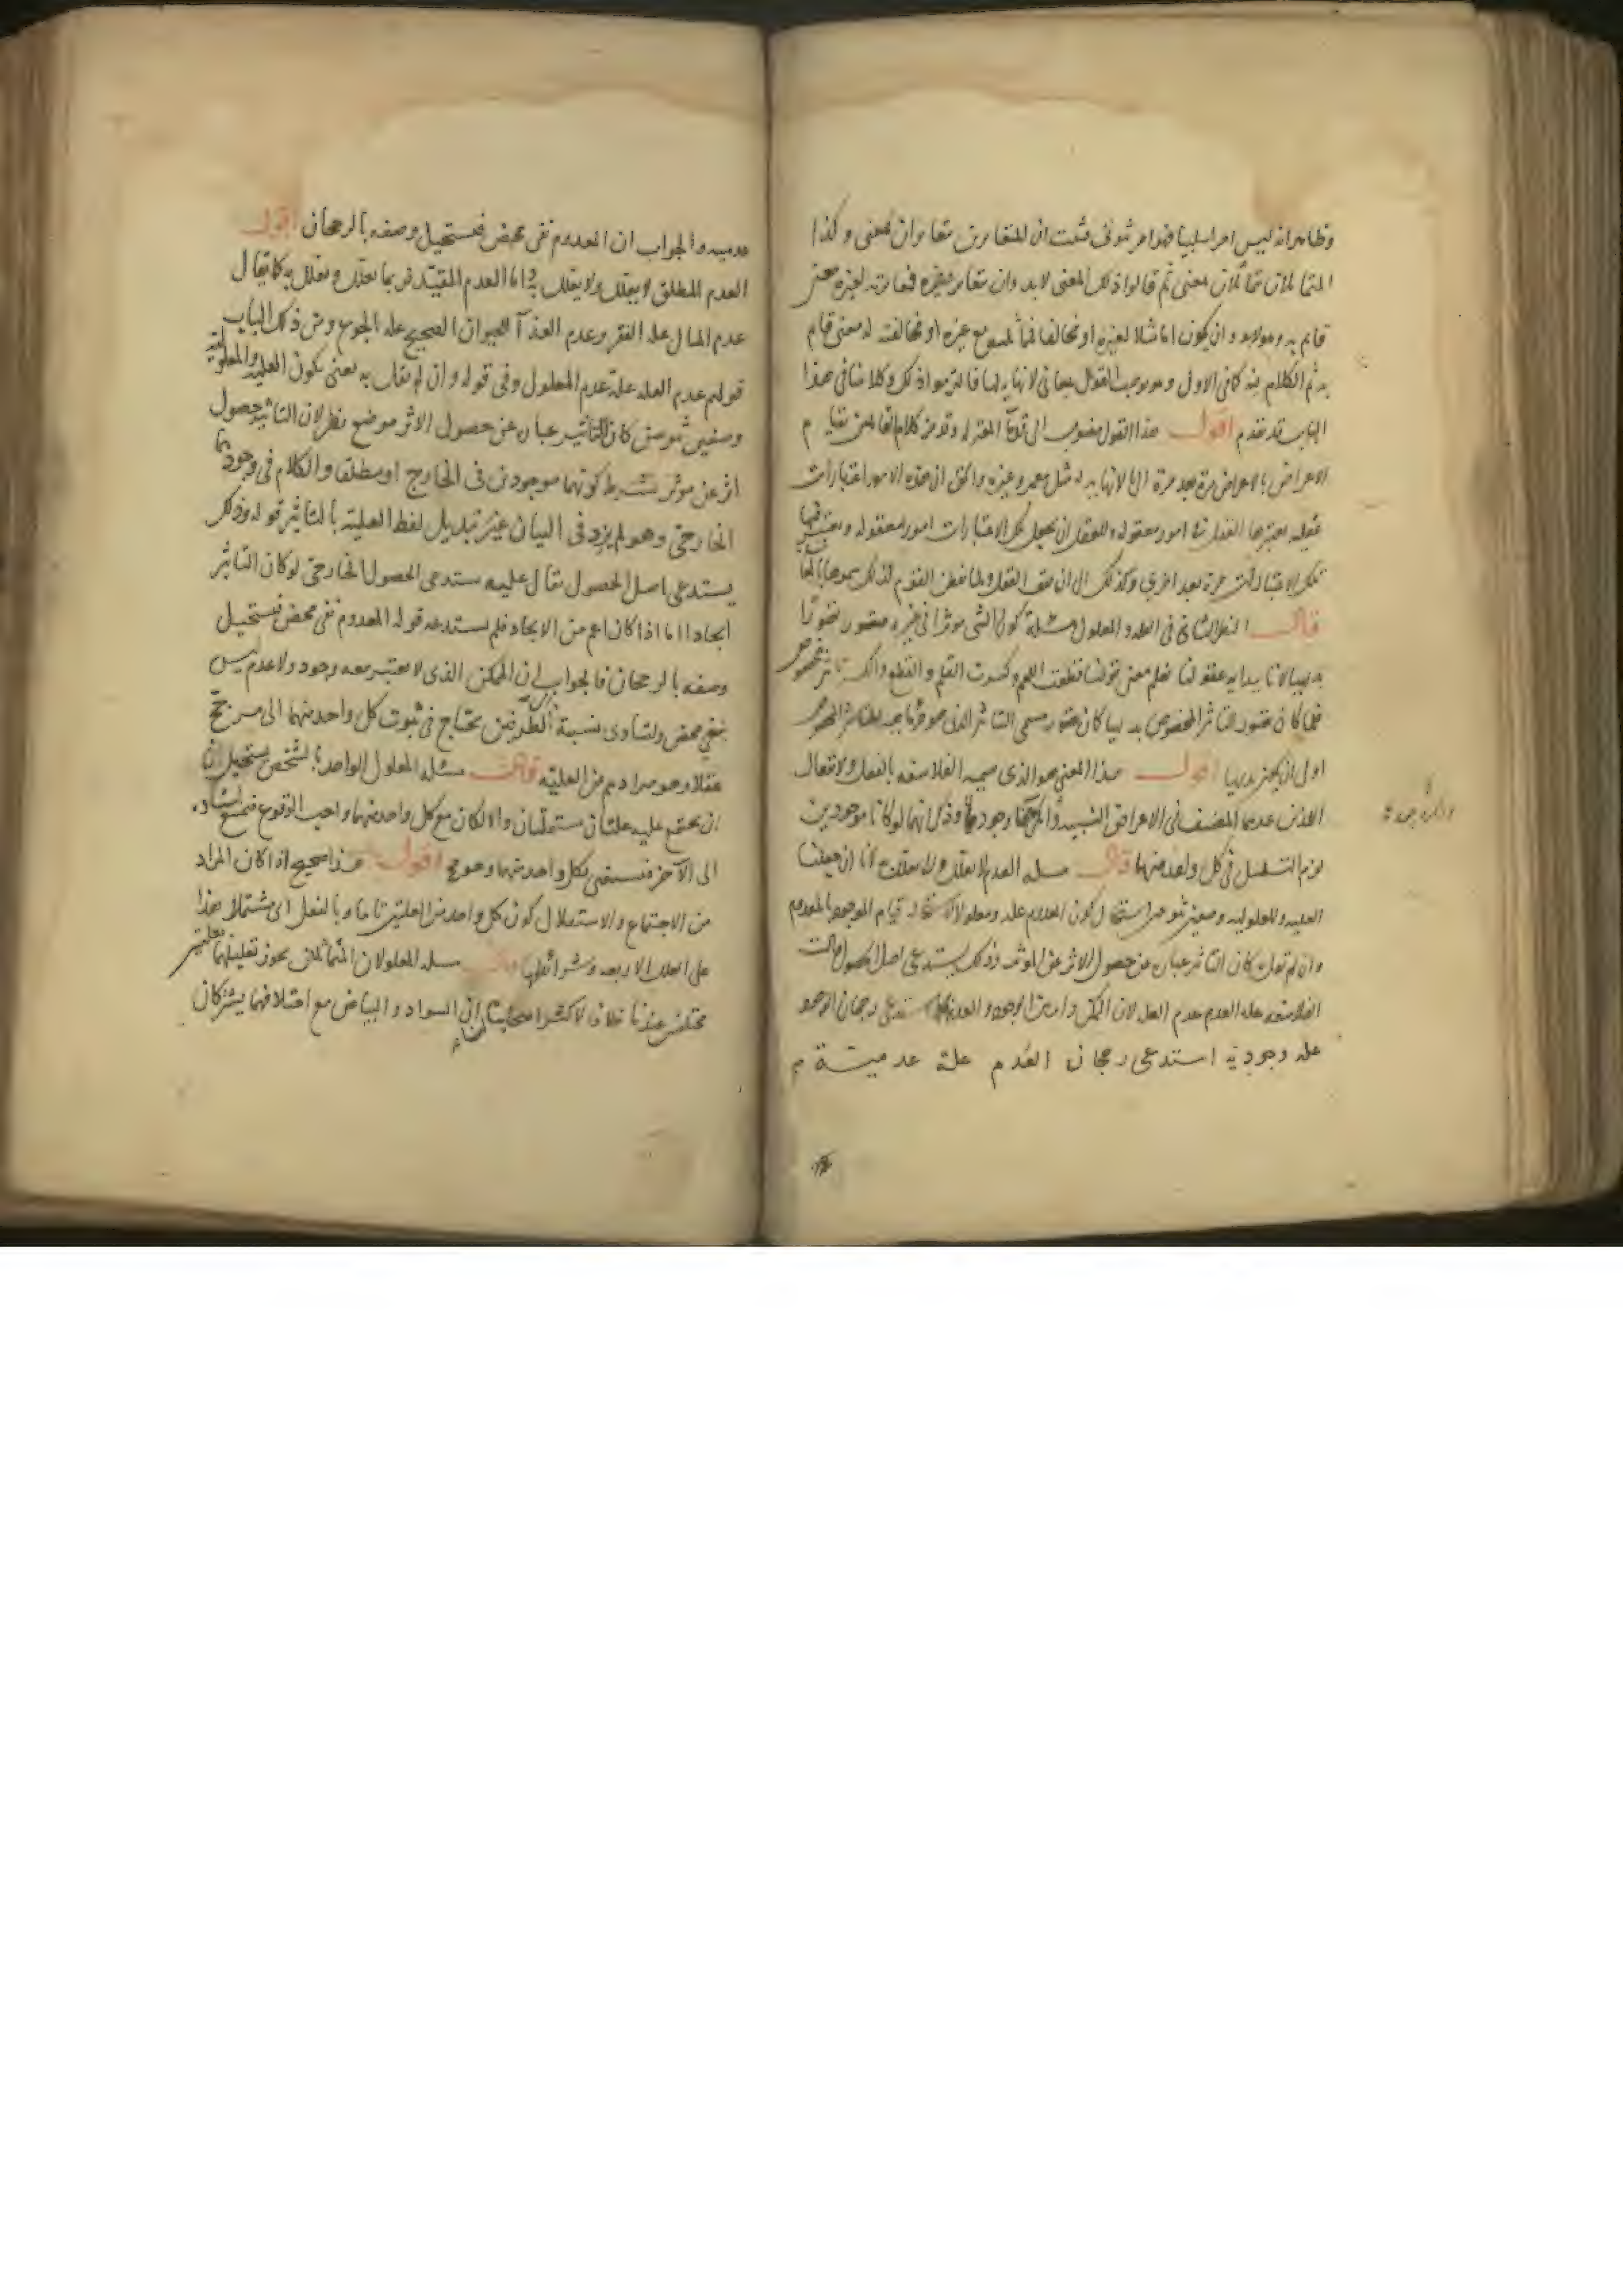 وظاهر انه ليس امرا سلبيا فهو امر ثبوتى فثبت ان المتغايرين متغايران لمعنى وكذا
المتماثلان متماثلان لمعنى ثم قالوا ذلك المعنى لابد وان يغاير غيره فمغايرته لغيره معنى
قايم به وهو لابد وان يكون اما مثلا لغيره او مخالفا فمماثلته مع غيره او مخالفته له معنى قايم
به ثم الكلام فيه كما فى الاول وهو يوجب القول بمعانى لانهاية لها فالتزموا ذلك وكلامنا فى هذا
الباب قد تقدم اقول هذا القول منسوب الى قدمآ المعتزلة وقد مر كلام القايلين بقيام
الاعراض بالاعراض مرة بعد مرة الى ما لانهاية له مثل معمر وغيره والحق ان هذه الامور اعتبارات
عقلية يعتبرها العقل فى امور معقولة وللعقل ان يجعل تلك الاعتبارات امورا معقولة ويعتبر فيها
تلك الاعتبارات مرة بعد اخرى وكذلك الى ان يقف العقل ولما تفطن القوم لذلك سموها بالمعانى
قال النظر الثانى فى العلة والمعلول مسئلة كون الشى موثرا فى غيره متصور تصورا
بديهيا لانا ببداية عقولنا نعلم معنى قولنا قطعت اللحم وكسرت القلم والقطع والكسر تاثير مخصوص
فلما كان تصور التاثير المخصوص بديهيا كان تصور مسمى التاثير الذى هو جزء ماهية التاثير المخصوص
اولى ان يكون بديهيا اقول هذا المعنى هو الذى يسميه الفلاسفة بالفعل والانفعال
اللذين عدهما المصنف فى الاعراض النسبية وانكر وجودهما وذكر انهما لو كانا موجودين
لزم التسلسل فى كل واحد منهما قال مسئلة العدم لا يعلل ولا يعلل به لانا ان جعلنا
العلية والمعلولية وصفين ثبوتيين استحال كون المعدوم علة ومعلولا لاستحالة قيام الموجود بالمعدوم
وان لم نقل به كان التاثير عبارة عن حصول الاثر عن الموثر وذلك يستدعى اصل الحصول قالت
الفلاسفة علة العدم عدم العلة لان الممكن دائر بين الوجود والعدم فكما استدعى رجحان الوجود
علة وجودية استدعى رجحان العدم علة عدمية
عدمية والجواب ان المعدوم نفى محض فيستحيل وصفه بالرجحان اقول
العدم المطلق لا يعلل ولا يعلل به اما العدم المقيد فربما يعلل ويعلل به كما يقال
عدم المال علة الفقر وعدم الغذآ للحيوان الصحيح علة الجوع ومن ذلك الباب
قولهم عدم العلة علة عدم المعلول وفى قوله وان لم نقل به يعنى بكون العلية والمعلولية
وصفين ثبوتيين كان التاثير عبارة عن حصول الاثر موضع نظر لان التاثير حصول
اثر عن موثر بشرط كونهما موجودين فى الخارج او مطلقا والكلام فى وجودهما
الخارجى وهو لم يزد فى البيان غير تبديل لفظ العلية بالتاثير قوله وذلك
يستدعى اصل الحصول يقال عليه يستدعى الحصول الخارجى لو كان التاثير
ايجادا اما اذا كان اعم من الايجاد فلم يستدعه قوله المعدوم نفى محض فيستحيل
وصفه بالرجحان فالجواب ان الممكن الذى لا يعتبر معه وجود ولا عدم ليس
بنفى محض ولتساوى نسبته الى الطرفين يحتاج فى ثبوت كل واحد منهما الى مرجح
عقلا وهو مرادهم من العلية قال مسئلة المعلول الواحد بالشخص يستحيل ان
ان يجتمع عليه علتان مستقلتان والا لكان مع كل واحد منهما واجب الوقوع فيمتنع استناده
الى الآخر فيستغنى بكل واحد منهما وهو مح اقول هذا صحيح اذا كان المراد
من الاجتماع والاستقلال كون كل واحد من العلتين تاما وبالفعل اى مشتملا هذا
على العلل الاربعة وشرائطها قال مسئلة المعلولان المتماثلان يجوز تعليلهما بعلتين
مختلفتين عندنا خلافا لاكثر اصحابنا لنا ان السواد والبياض مع اختلافهما يشتركان